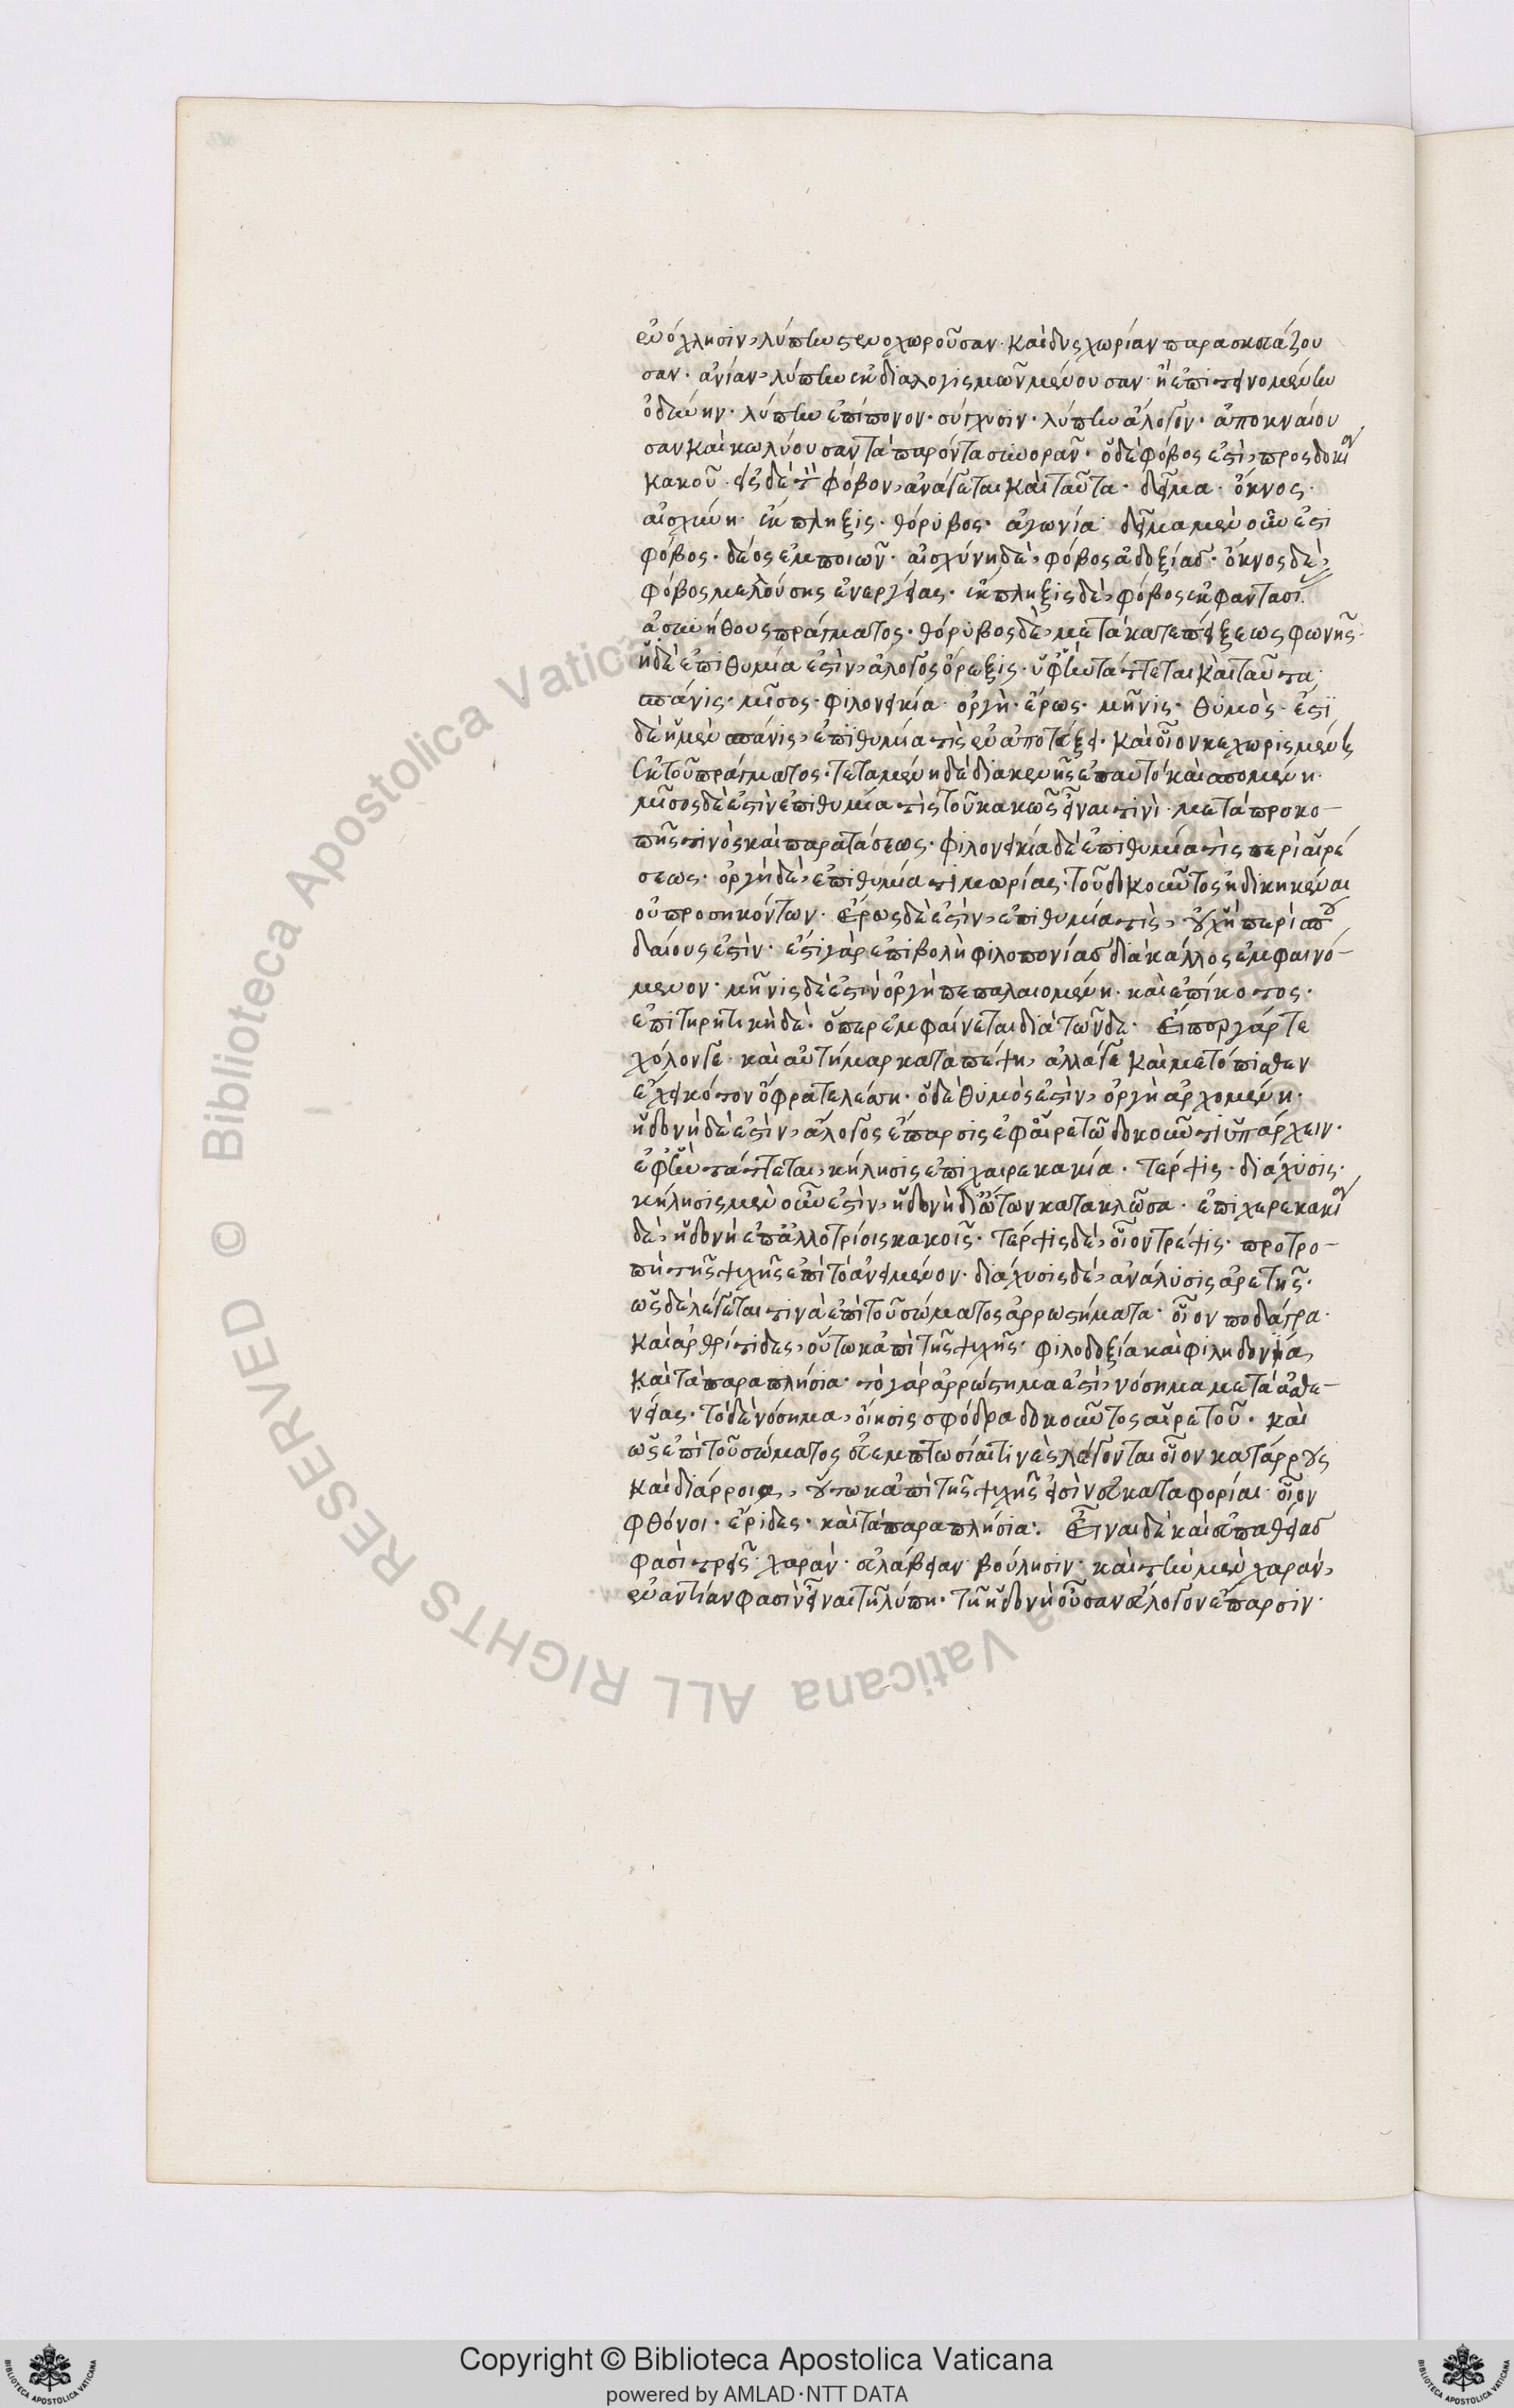 ἐνόχλησιν, λύπην στενοχωροῦσαν. καὶ δυσχωρίαν παρασκευάζου
σαν. ἀνίαν, λύπην ἐκ διαλογισμῶν μένουσαν ἢ ἐπιτεινομένην
ὀδύνην. λύπην ἐπίπονον. σύγχυσιν. λύπην ἄλογον. ἀποκναίου
σαν καὶ κωλύουσαν τὰ παρόντα συνορᾶν. ὁ δὲ φόβος ἐστὶ, προσδοκία
κακοῦ. εἰς δὲ τὸν φόβον, ἀνάγεται καὶ ταῦτα. δεῖμα. ὄκνος.
αἰσχύνη. ἔκπληξις. θόρυβος. ἀγωνία. δεῖμα μὲν οὖν ἐστὶ
φόβος. δέος ἐμποιῶν. αἰσχύνη δὲ, φόβος ἀδοξίας. ὄκνος δὲ,
φόβος μελλούσης ἐνεργείας. ἔκπληξις δὲ, φόβος ἐκ φαντασί
ἀσυνήθους πράγματος. θόρυβος δὲ, μετὰ κατεπείξεως φωνῆς.
ἡ δὲ ἐπιθυμία ἐστὶν, ἄλογος ὄρεξις. ὑφ' ἣν τάττεται καὶ ταῦτα.
σπάνις. μῖσος. φιλονεικία. ὀργὴ. ἔρως. μῆνις. θυμὸς. ἔστι
δὲ ἡ μὲν σπάνις, ἐπιθυμία τὶς ἐν ἀποτεύξει. καὶ οἷον κεχωρισμένη
ἐκ τοῦ πράγματος. τεταμένη δὲ διακενῆς ἐπ' αὐτὸ καὶ σπομένη.
μῖσος δὲ ἐστὶν ἐπιθυμία τὶς τοῦ κακῶς εἶναι τινὶ. μετὰ προκο-
πῆς τινὸς καὶ παρατάσεως. φιλονεικία δὲ ἐπιθυμία τὶς περὶ αἱρέ
σεως. ὀργὴ δὲ, ἐπιθυμία τιμωρίας. τοῦ δοκοῦντος ἠδικηκέναι
οὐ προσηκόντων. ἔρως δὲ ἐστὶν, ἐπιθυμία τὶς, οὐχὶ περὶ σπου
δαίους ἐστὶν. ἔστι γὰρ ἐπιβολὴ φιλοπονίας διὰ κάλλος ἐμφαινό-
μενον. μῆνις δὲ ἐστὶν ὀργὴ πεπαλαιομένη. καὶ ἐπίκοτος.
ἐπιτηρητικὴ δὲ. ὅπερ ἐμφαίνεται διὰ τῶνδε. Εἴπορ γάρ τε
χόλον γε. καὶ αὐτῆμαρ καταπέψη, ἀλλά γε καὶ μετόπισθεν
ἔχει κότον ὄφρα τελέσση. ὁ δὲ θυμὸς ἐστὶν, ὀργὴ ἀρχομένη.
ἡδονὴ δὲ ἐστὶν, ἄλογος ἔπαρσις ἐφ' αἱρετῷ δοκοῦντι ὑπάρχειν.
ἐφ' ἣν τάττεται, κήλησις ἐπιχαιρεκακία. τέρψις. διάχυσις.
κήλησις μὲν οὖν ἐστὶν, ἡδονὴ δι' ὤτων κατακλῶσα. ἐπιχαρεκακία
δὲ, ἡδονὴ ἐπ' ἀλλοτρίοις κακοῖς. τέρψις δὲ, οἷον τρέψις. προτρο-
πὴ τῆς ψυχῆς ἐπὶ τὸ ἀνειμένον. διάχυσις δὲ, ἀνάλυσις ἀρετῆς.
ὡς δὲ λέγεται τινὰ ἐπὶ τοῦ σώματος ἀρρωστήματα. οἷον ποδάγρα.
καὶ ἀρθρίτιδες, οὕτω κἀπὶ τῆς ψυχῆς. φιλοδοξία καὶ φιληδονία,
καὶ τὰ παραπλήσια. τὸ γὰρ ἀρρώστημα ἐστὶ, νόσημα μετὰ ἀσθε-
νείας. τὸ δὲ νόσημα, οἴησις σφόδρα δοκοῦντος αἱρετοῦ. καὶ
ὡς ἐπὶ τοῦ σώματος εὐεμπτωσίαι τινὲς λέγονται οἷον κατάρρους
καὶ διάρροια, οὕτω κἀπὶ τῆς ψυχῆς εἰσὶν εὐκαταφορίαι. οἷον
φθόνοι. ἔριδες. καὶ τὰ παραπλήσια. Εἶναι δὲ καὶ εὐπαθείας
φασὶ τρεῖς. χαρὰν. εὐλάβειαν. βούλησιν. καὶ τὴν μὲν χαρὰν,
ἐναντίαν φασὶν εἶναι τῇ λύπη. τῆ ἡδονὴ οὖσαν εὔλογον ἔπαρσιν.
Biblioteca Apostolica Vaticana ALL RIGHTS RESERVED ©
Copyright © Biblioteca Apostolica Vaticana
powered by AMLAD·NTT DATA
BIBLIOTECA APOSTOLICA VATICANA
BIBLIOTECA APOSTOLICA VATICANA